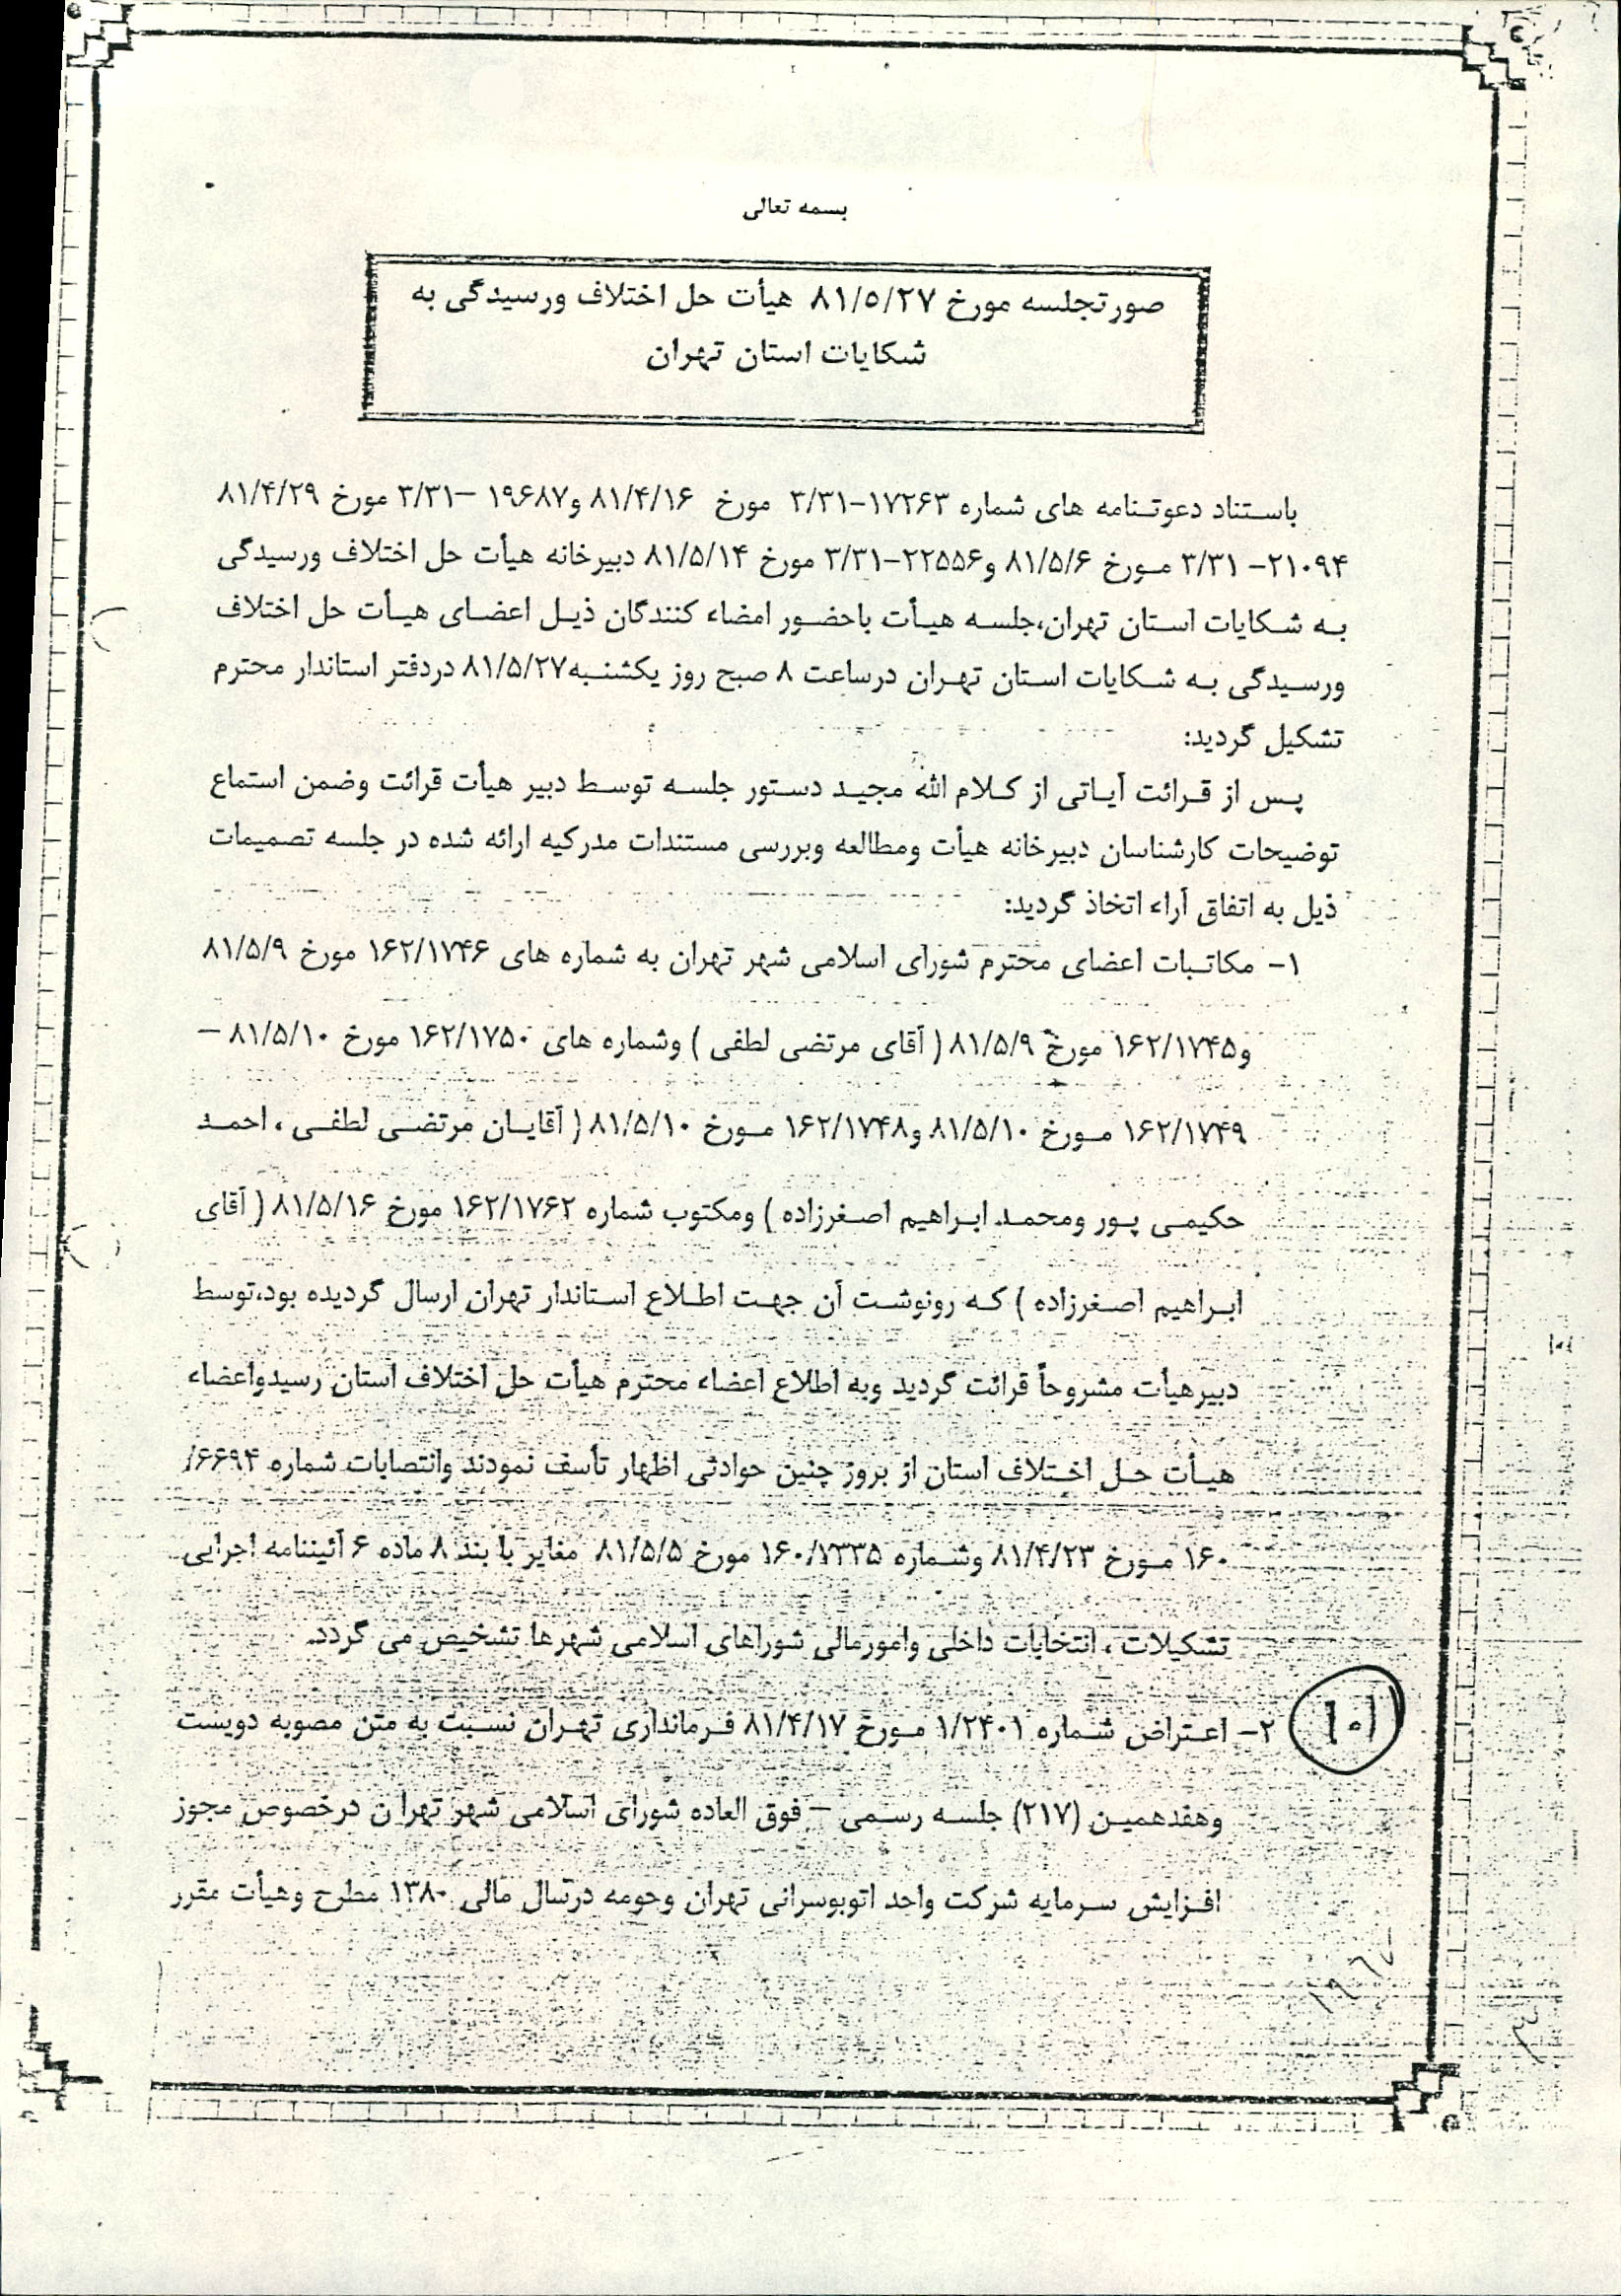 بسمه تعالی
صورتجلسه مورخ ۸۱/۵/۲۷ هیأت حل اختلاف ورسیدگی به
شکایات استان تهران
باستناد دعوتنامه های شماره ۱۷۲۶۳-۳/۳۱ مورخ ۸۱/۴/۱۶ و۱۹۶۸۷ -۳/۳۱ مورخ ۸۱/۴/۲۹
۲۱۰۹۴- ۳/۳۱ مورخ ۸۱/۵/۶ و۲۲۵۵۶-۳/۳۱ مورخ ۸۱/۵/۱۴ دبیرخانه هیأت حل اختلاف ورسیدگی
به شکایات استان تهران،جلسه هیأت باحضور امضاء کنندگان ذیل اعضای هیأت حل اختلاف
ورسیدگی به شکایات استان تهران درساعت ۸ صبح روز یکشنبه۸۱/۵/۲۷ دردفتر استاندار محترم
تشکیل گردید:
پس از قرائت آیاتی از کلام الله مجید دستور جلسه توسط دبیر هیأت قرائت وضمن استماع
توضیحات کارشناسان دبیرخانه هیأت ومطالعه وبررسی مستندات مدرکیه ارائه شده در جلسه تصمیمات
ذیل به اتفاق آراء اتخاذ گردید:
۱- مکاتبات اعضای محترم شورای اسلامی شهر تهران به شماره های ۱۶۲/۱۷۴۶ مورخ ۸۱/۵/۹
و۱۶۲/۱۷۴۵ مورخ ۸۱/۵/۹ ( آقای مرتضی لطفی ) وشماره های ۱۶۲/۱۷۵۰ مورخ ۸۱/۵/۱۰ –
۱۶۲/۱۷۴۹ مورخ ۸۱/۵/۱۰ و۱۶۲/۱۷۴۸ مورخ ۸۱/۵/۱۰ ( آقایان مرتضی لطفی ، احمد
حکیمی پور ومحمد ابراهیم اصغرزاده ) ومکتوب شماره ۱۶۲/۱۷۶۲ مورخ ۸۱/۵/۱۶ ( آقای
ابراهیم اصغرزاده ) که رونوشت آن جهت اطلاع استاندار تهران ارسال گردیده بود،توسط
دبیرهیأت مشروحاً قرائت گردید وبه اطلاع اعضاء محترم هیأت حل اختلاف استان رسیدواعضاء
هیأت حل اختلاف استان از بروز چنین حوادثی اظهار تأسف نمودند وانتصابات شماره ۶۶۹۴/
۱۶۰ مورخ ۸۱/۴/۲۳ وشماره ۱۶۰/۷۳۳۵ مورخ ۸۱/۵/۵ مغایر با بند ۸ ماده ۶ آئیننامه اجرایی
تشکیلات ، انتخابات داخلی وامورمالی شوراهای اسلامی شهرها تشخیص می گردد.
۱۰۱
۲- اعتراض شماره ۱/۲۴۰۱ مورخ ۸۱/۴/۱۷ فرمانداری تهران نسبت به متن مصوبه دویست
وهفدهمین (۲۱۷) جلسه رسمی – فوق العاده شورای اسلامی شهر تهران درخصوص مجوز
افزایش سرمایه شرکت واحد اتوبوسرانی تهران وحومه درسال مالی ۱۳۸۰ مطرح وهیأت مقرر